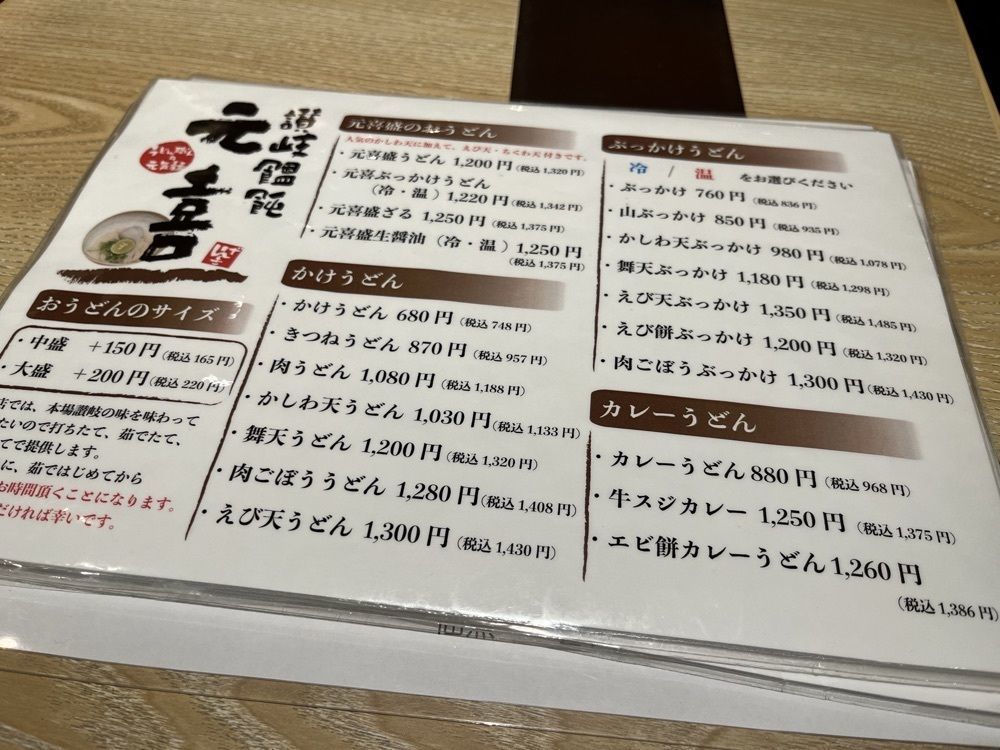 讃岐饂飩
元喜
おうどんのサイズ
・中盛 +150円(税込165円)
・大盛 +200円(税込220円)
店では、本場讃岐の味を味わって
たいので打ちたて、茹でたて、
てで提供します。
に、茹ではじめてから
お時間頂くことになります。
だければ幸いです。
元喜盛のおうどん
人気のかしわ天に加えて、えび天・ちくわ天付きです。
・元喜盛うどん 1,200円(税込1,320円)
・元喜ぶっかけうどん
(冷・温)1,220円(税込1,342円)
・元喜盛ざる 1,250円(税込1,375円)
・元喜盛生醬油(冷・温)1,250円
(税込1,375円)
かけうどん
・かけうどん 680円(税込748円)
・きつねうどん 870円(税込957円)
・肉うどん 1,080円(税込1,188円)
・かしわ天うどん 1,030円(税込1,133円)
・舞天うどん 1,200円(税込1,320円)
・肉ごぼううどん 1,280円(税込1,408円)
・えび天うどん 1,300円(税込1,430円)
ぶっかけうどん
冷 / 温 をお選びください
・ぶっかけ 760円(税込836円)
・山ぶっかけ 850円(税込935円)
・かしわ天ぶっかけ 980円(税込1,078円)
・舞天ぶっかけ 1,180円(税込1,298円)
・えび天ぶっかけ 1,350円(税込1,485円)
・えび餅ぶっかけ 1,200円(税込1,320円)
・肉ごぼうぶっかけ 1,300円(税込1,430円)
カレーうどん
・カレーうどん 880円(税込968円)
・牛スジカレー 1,250円(税込1,375円)
・エビ餅カレーうどん 1,260円
(税込1,386円)